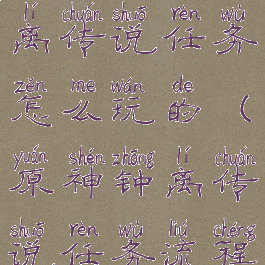 lí chuán shuō rèn wù
离传说任务
zěn me wán de
怎么玩的（
yuán shén zhōng lí chuán
原神钟离传
shuō rèn wù liú chéng
说任务流程